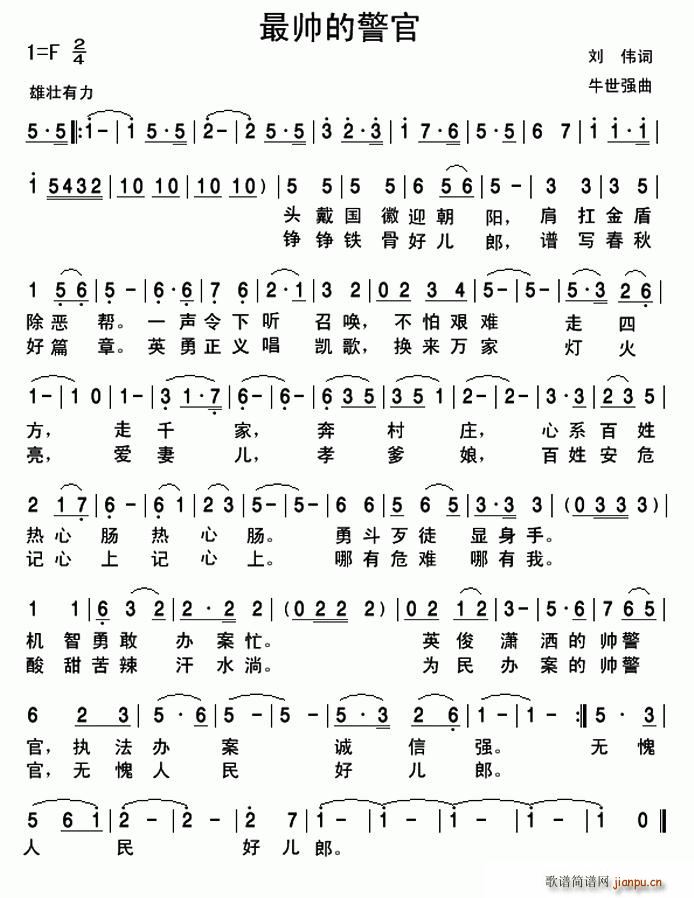 最帅的警官
1=F 2/4
刘　伟词
雄壮有力
牛世强曲
5·5|:1-|1 5·5|2-|2 5·5|3 2·3|1 7·6|5·5|6 7|1 1·1|
1 5432|10 10|10 10|10 10)|5 5|5 5|6 5 6|5-|3 3|3 5|
头戴国徽迎朝阳，肩扛金盾
铮铮铁骨好儿郎，谱写春秋
1 5 6|5-|6·6|7 6|2·1|3 2|02 3 4|5-|5-|5·3 26|
除恶帮。一声令下听召唤，不怕艰难走四
好篇章。英勇正义唱凯歌，换来万家灯火
1-|1 0|1-|3 1·7|6-|6-|6 35|3 51|2-|2-|3·3|2 35|
方，走千家，奔村庄，心系百姓
亮，爱妻儿，孝爹娘，百姓安危
2 17|6-|6 1|2 3|5-|5-|6 2|5 65|3·3 3|(03 33)|
热心肠热心肠。勇斗歹徒显身手。
记心上记心上。哪有危难哪有我。
1 1|6 3 2|2·2 2|(02 2 2)|02 12|3-|5·6|7 65|
机智勇敢办案忙。英俊潇洒的帅警
酸甜苦辣汗水淌。为民办案的帅警
6 2 3|5-|5·6|5-|5-|5·3 26|1-|1-:|5·3|
官，执法办案诚信强。无愧
官，无愧人民好儿郎。
5 61|2-|2-|2 7|1-|1-|1-|1 0||
人民好儿郎。
歌谱简谱网
jianpu.cn